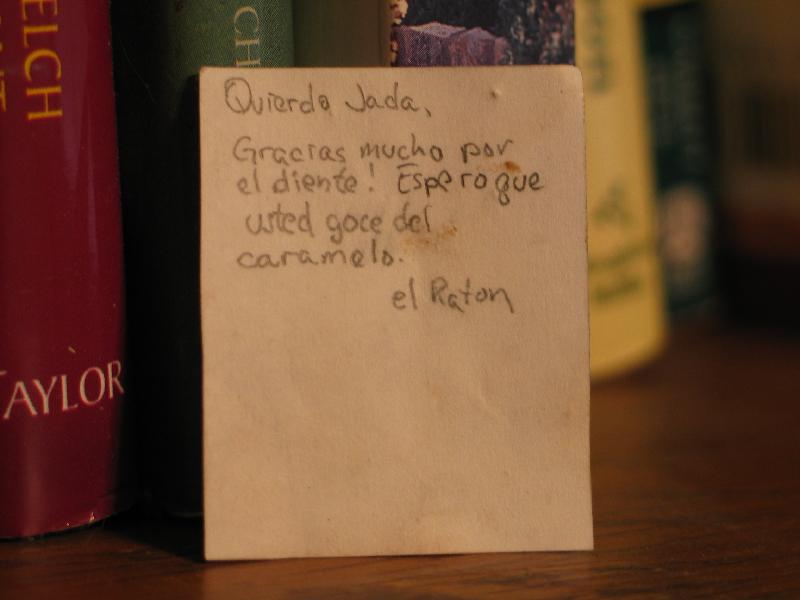 Quierdo Jada,
Gracias mucho por
el diente! Espero que
usted goce del
caramelo.
el Raton
ELCH
TAYLOR
CH